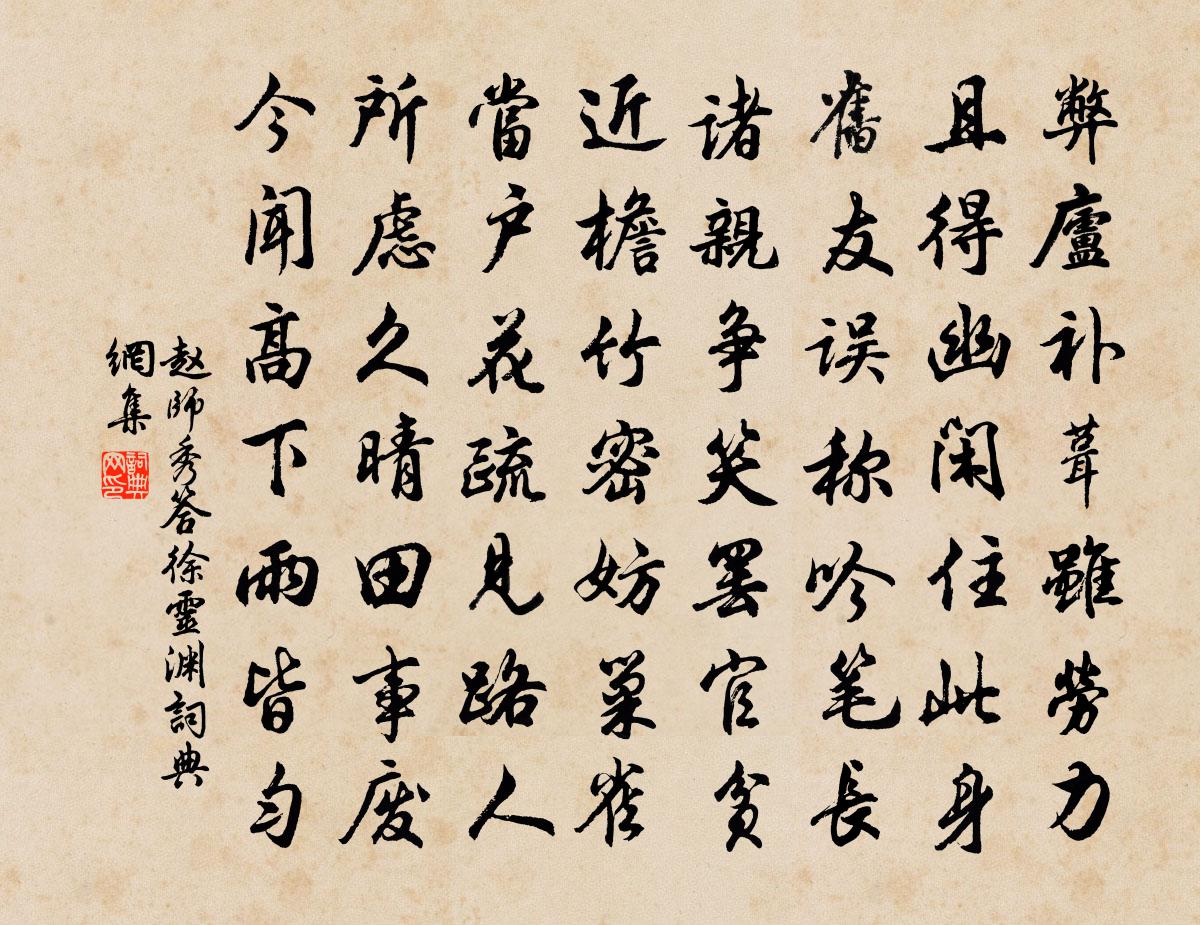 弊廬补葺雖勞力
且得幽闲住此身
舊友误称吟笔長
诸親争笑罢官贫
近檐竹密妨巢雀
當户花疏见路人
所虑久晴田事废
今闻高下雨皆匀
赵師秀答徐靈渊詞典
網集
詞典
网印